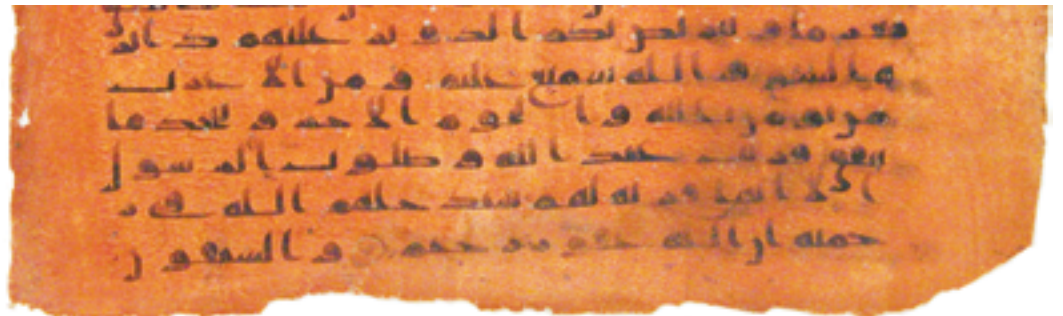 مغرما ويتربص بكم الدوير عليهم داير
ه السو والله سميع عليم ومن الاعرب
من يومن بالله واليوم الاخر ويتخذ ما
ينفق قربت عند الله وصلوت الرسول
الا انها قربه لهم سيدخلهم الله في ر
حمته ان الله غفور رحيم والسبقون